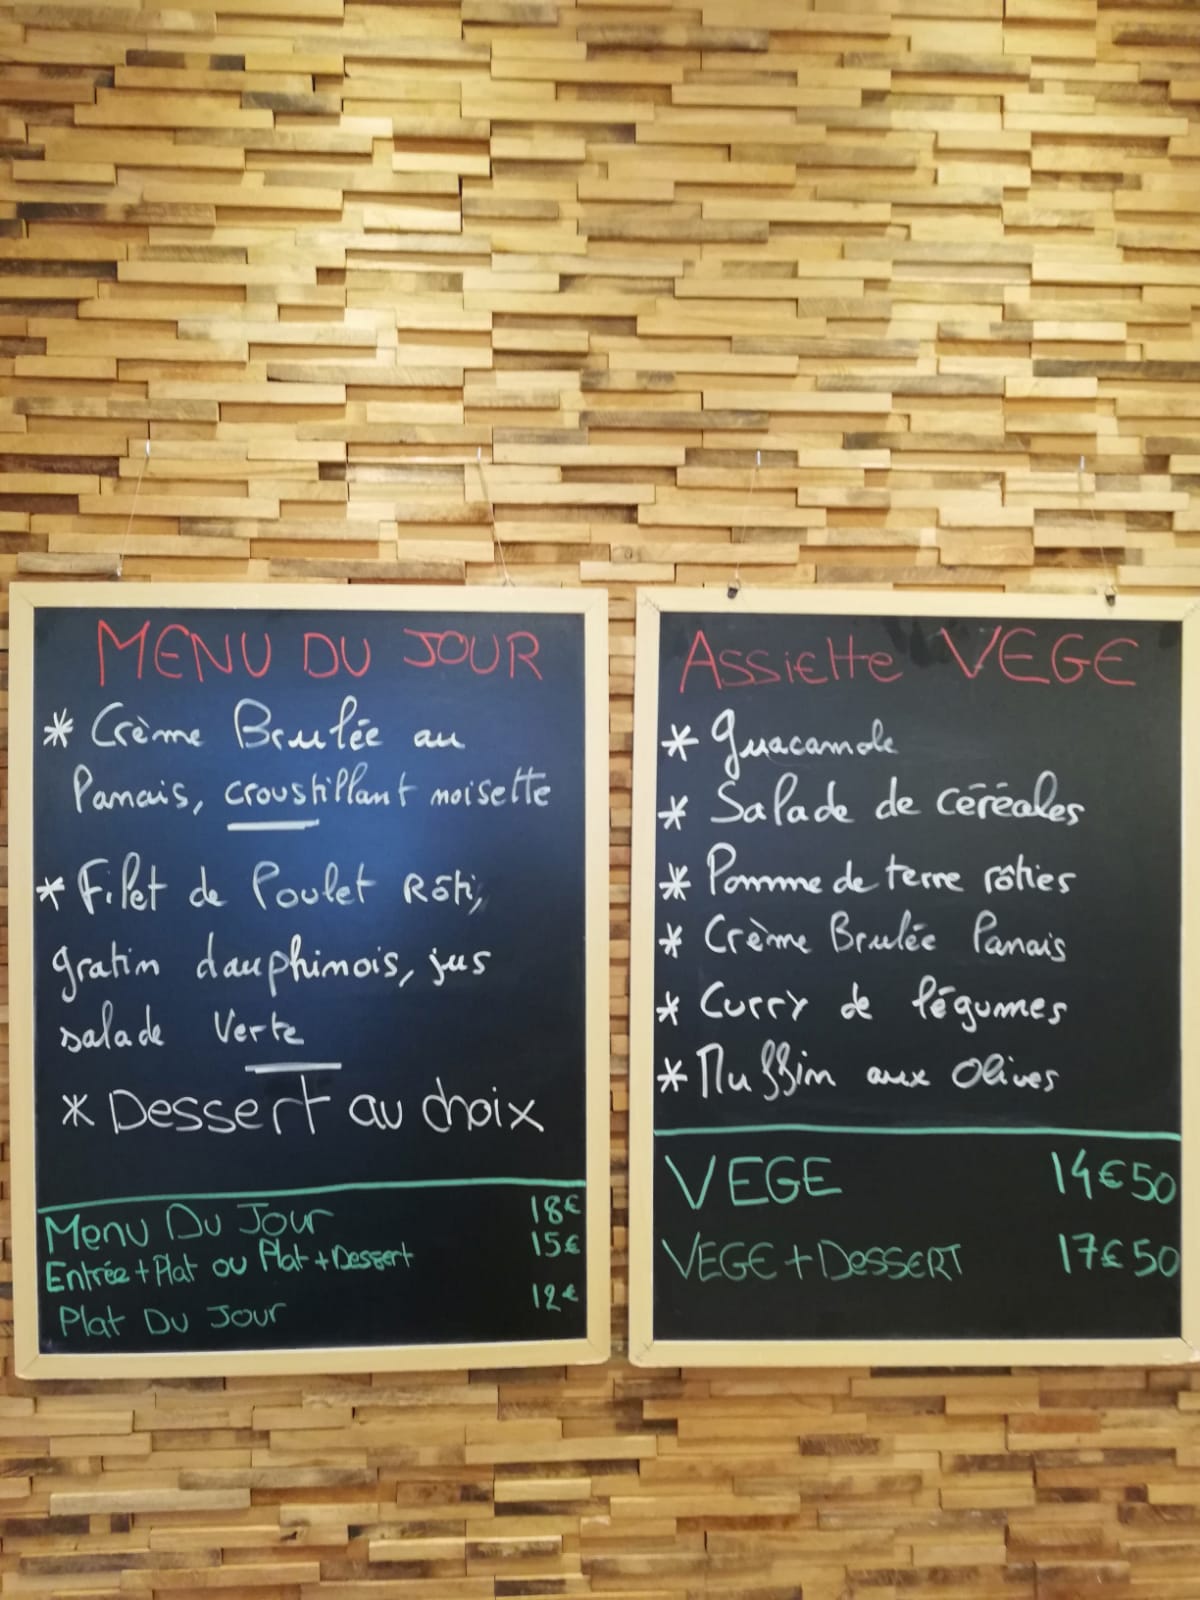 MENU DU JOUR
* Crème Brulée au
Panais, croustillant noisette
* Filet de Poulet Rôti,
gratin dauphinois, jus
salade Verte
* Dessert au choix
Menu Du Jour 18€
Entrée + Plat ou Plat + Dessert 15€
Plat Du Jour 12€
Assiette VEGE
* Guacamole
* Salade de céréales
* Pomme de terre rôties
* Crème Brulée Panais
* Curry de légumes
* Muffin aux Olives
VEGE 14€50
VEGE + DESSERT 17€50